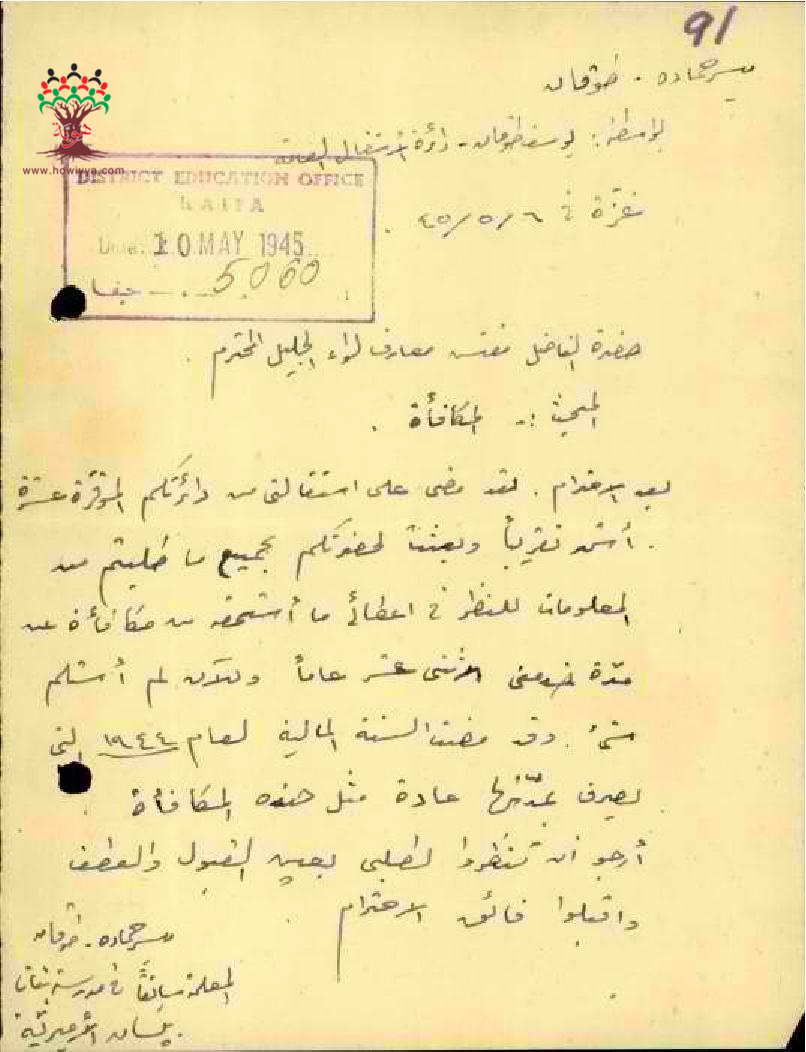 91
يسر حماده - طوقان
بواسطة: يوسف طوقان - دائرة الأشغال العامة
هوية
www.howiyya.com
DISTRICT EDUCATION OFFICE
HAIFA
Date. 10 MAY 1945
5060 حيفا
غزة في ٦/٥/٤٥.
حضرة الفاضل مفتش معارف لواء الجليل المحترم.
المبحث:- المكافأة.
بعد الاحترام. لقد مضى على استقالتي من دائرتكم الموقرة عشرة
أشهر تقريباً وبعثت لحضرتكم بجميع ما طلبتم من
المعلومات للنظر في اعطائي ما أستحقه من مكافأة عن
مدة خدمتي الاثنى عشر عاماً وللآن لم أستلم
شيء. وقد مضت السنة المالية لعام ١٩٤٤ التي
يصرف بمدتها عادة مثل هذه المكافأة.
أرجو أن تنظروا لطلبي بعين القبول والعطف
واقبلوا فائق الاحترام.
يسر حماده - طوقان
المعلمة سابقاً في مدرسة بنات
بيسان الأميرية.